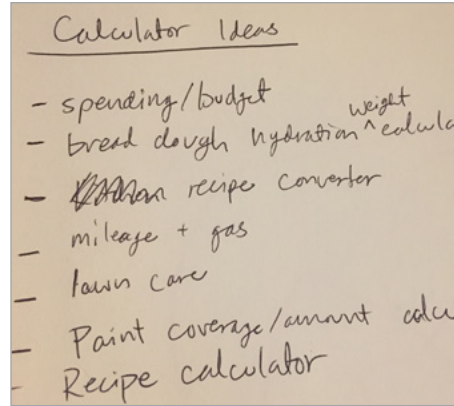 Calculator Ideas
- spending/budget
- bread dough hydration ^weight calcula
- recipe converter
- mileage + gas
- lawn care
- Paint coverage/amount calcu
- Recipe calculator